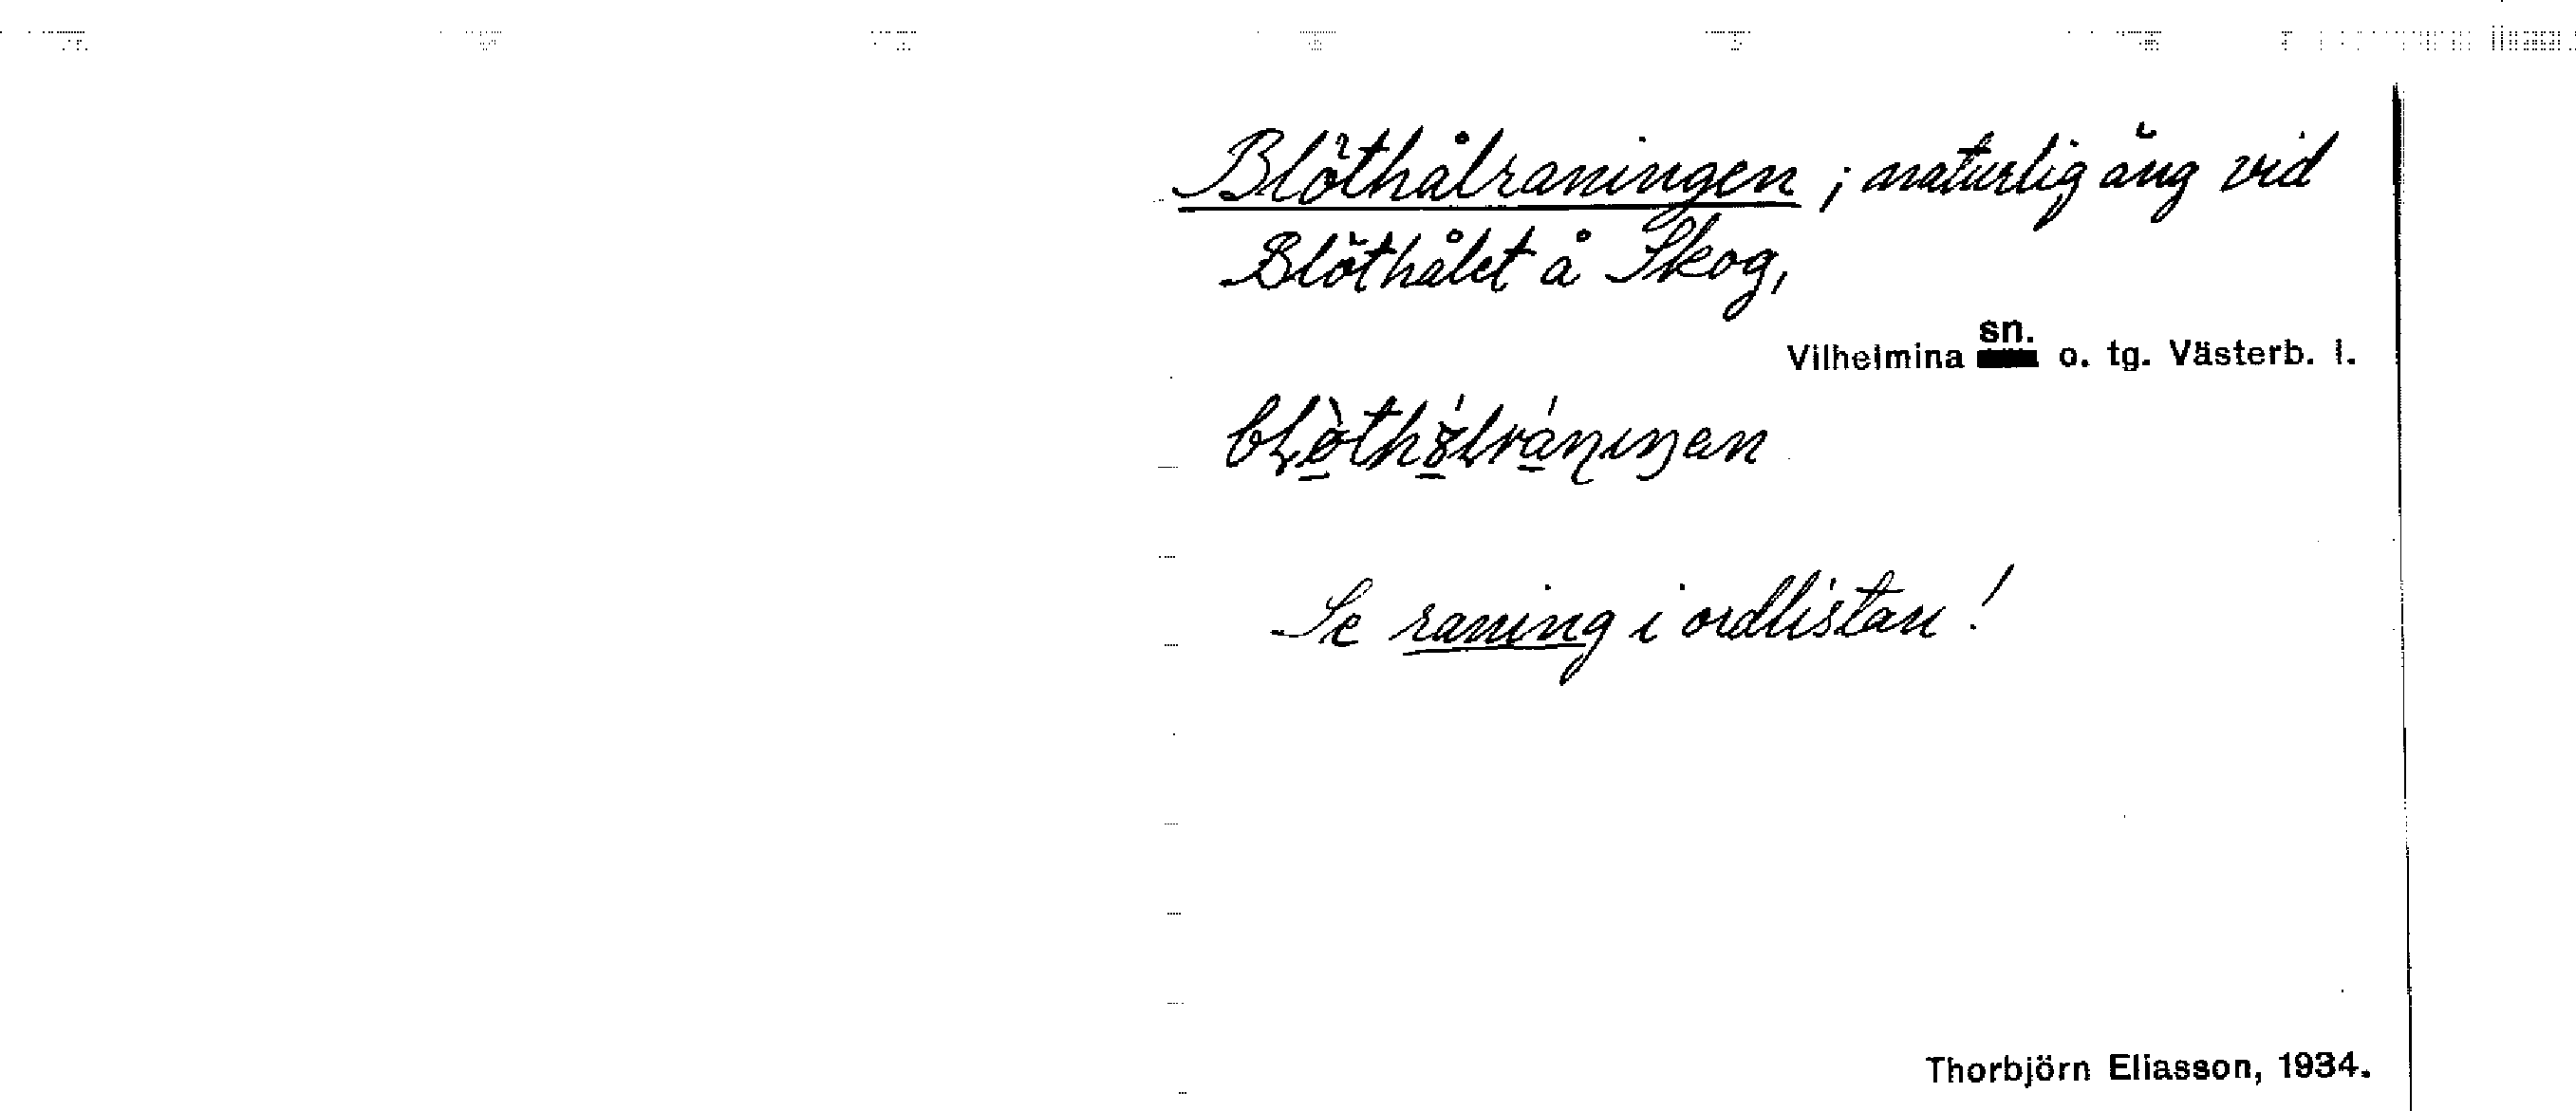 Blöthålraningen; naturlig äng vid
Blöthålet å Skog,
Vilhelmina sn. o. tg. Västerb. l.
Se raning i ordlistan!
Thorbjörn Eliasson, 1934.